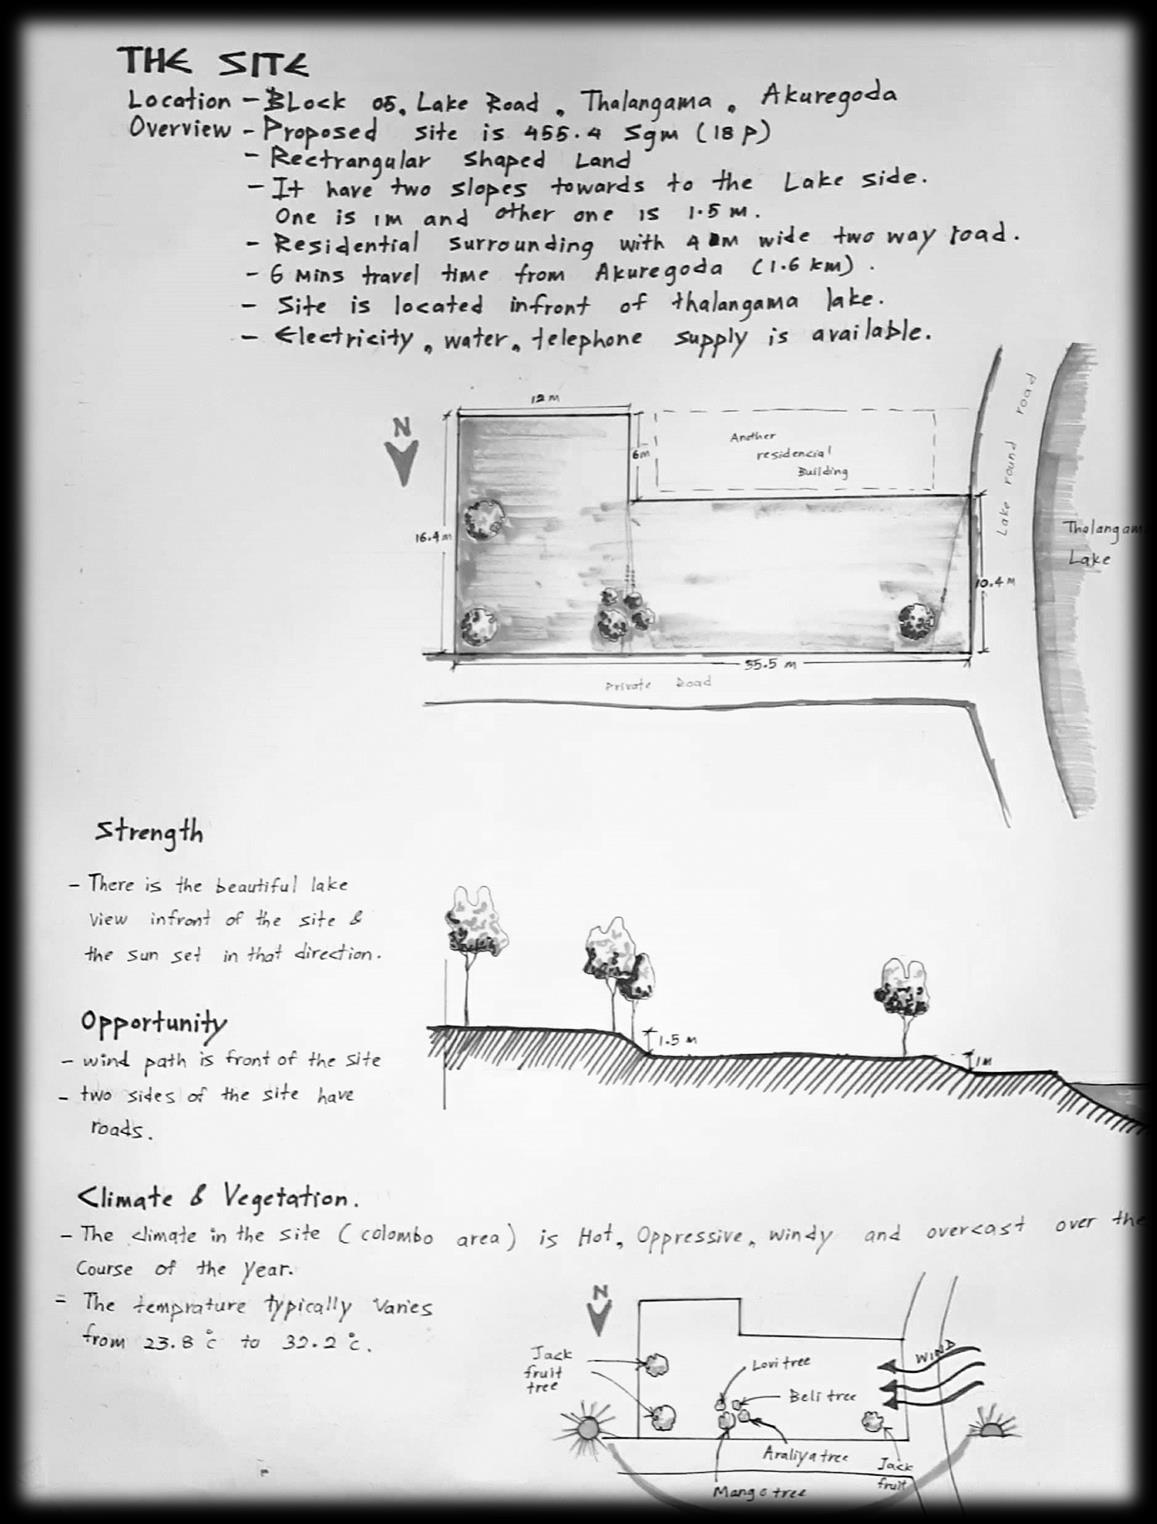 THE SITE
Location - Block 05, Lake Road, Thalangama, Akuregoda
Overview - Proposed site is 455.4 Sqm (18 P)
- Rectrangular shaped Land
- It have two slopes towards to the Lake side.
One is 1m and other one is 1.5 m.
- Residential surrounding with 4 m wide two way road.
- 6 Mins travel time from Akuregoda (1.6 km).
- Site is located infront of thalangama lake.
- Electricity, water, telephone supply is available.
12 m
N
6m
Another
residencial
Building
Lake round road
16.4 m
Thalangam
Lake
10.4 m
35.5 m
Private Road
Strength
- There is the beautiful lake
view infront of the site &
the sun set in that direction.
Opportunity
- wind path is front of the site
- two sides of the site have
roads.
1.5 m
1m
Climate & Vegetation.
- The climate in the site (colombo area) is Hot, Oppressive, windy and overcast over the
Course of the year.
= The temprature typically varies
from 23.8 °c to 32.2 °c.
N
WIND
Jack
fruit
tree
Lovi tree
Beli tree
Araliya tree
Jack
fruit
Mango tree